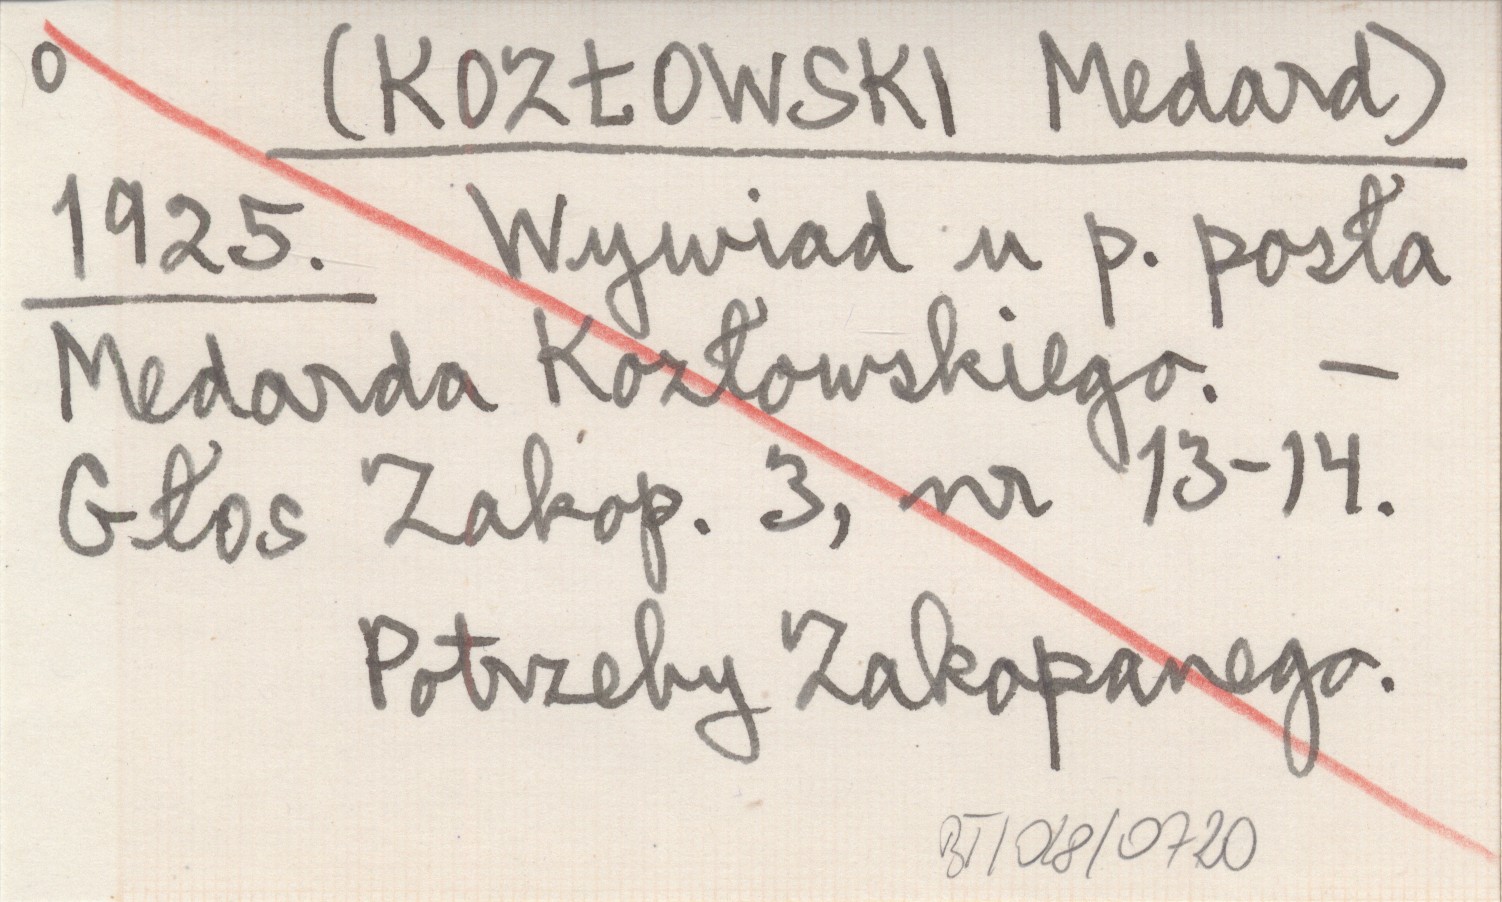 o (KOZŁOWSKI Medard)
1925. Wywiad u p. posła
Medarda Kozłowskiego. –
Głos Zakop. 3, nr 13-14.
Potrzeby Zakopanego.
BT/018/0720